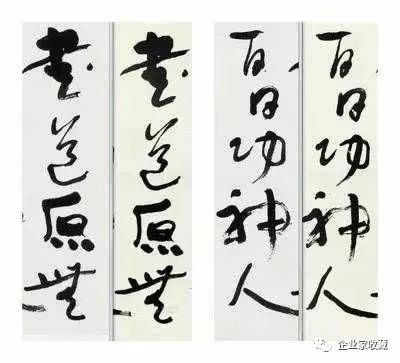 書道原無
書道原無
百日功神人
百日功神人
企业家收藏